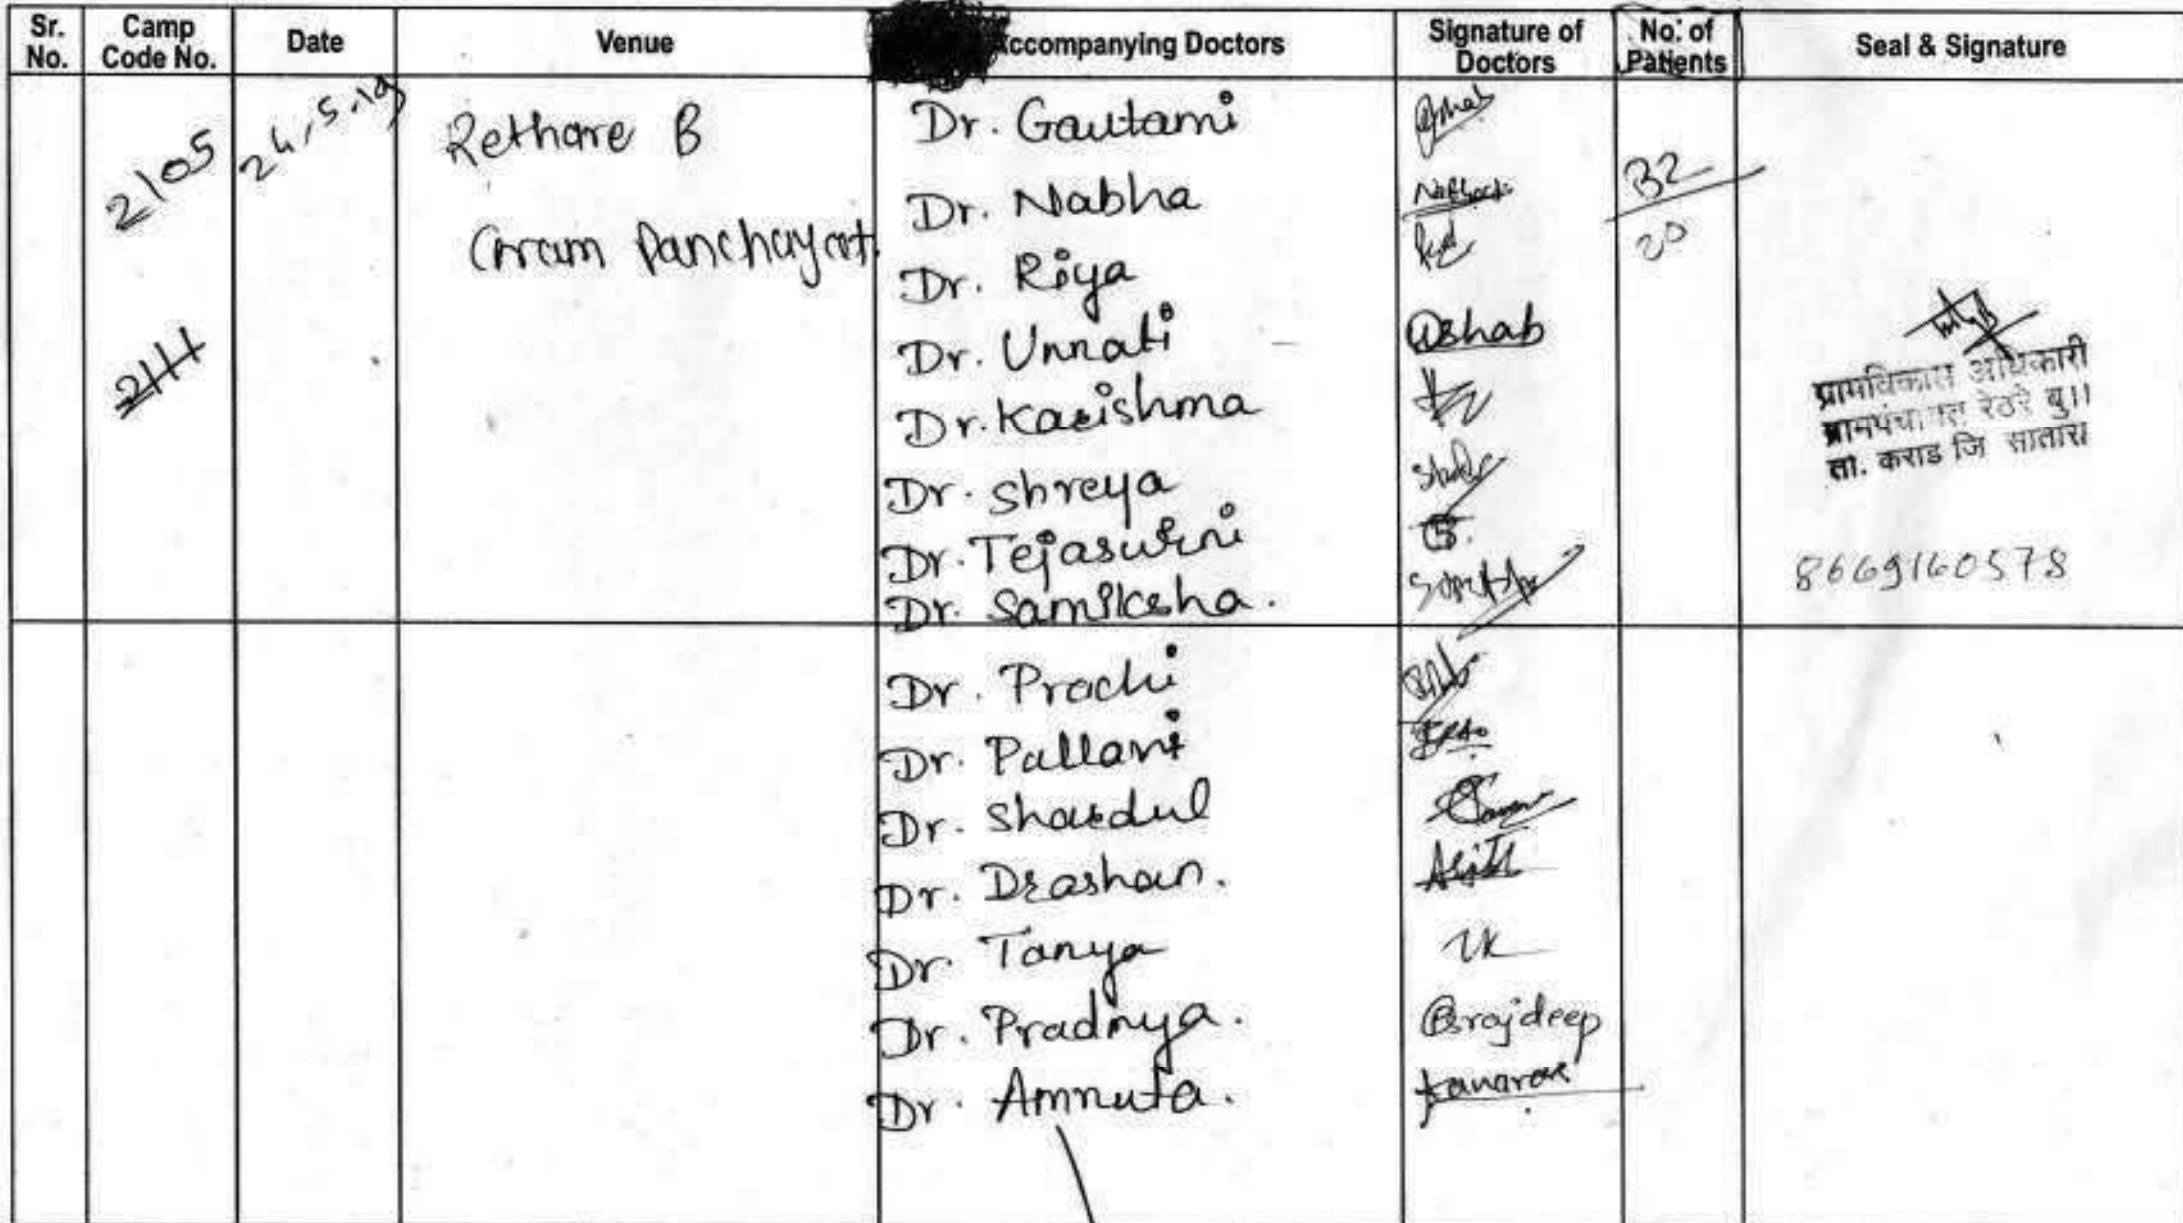 Sr. No.
Camp Code No.
Date
Venue
Accompanying Doctors
Signature of Doctors
No. of Patients
Seal & Signature
2105
24.5.19
Rethare B
Gram Panchayat.
Dr. Gautami
Dr. Nabha
Dr. Riya
Dr. Unnati
Dr. Karishma
Dr. Shreya
Dr. Tejaswini
Dr. Samiksha.
32
20
2111
ग्रामविकास अधिकारी
ग्रामपंचायत रेठरे बु।।
ता. कराड जि सातारा
8669160578
Dr. Prachi
Dr. Pallavi
Dr. Shardul
Dr. Drashan.
Dr. Tanya
Dr. Pradnya.
Dr. Amruta.